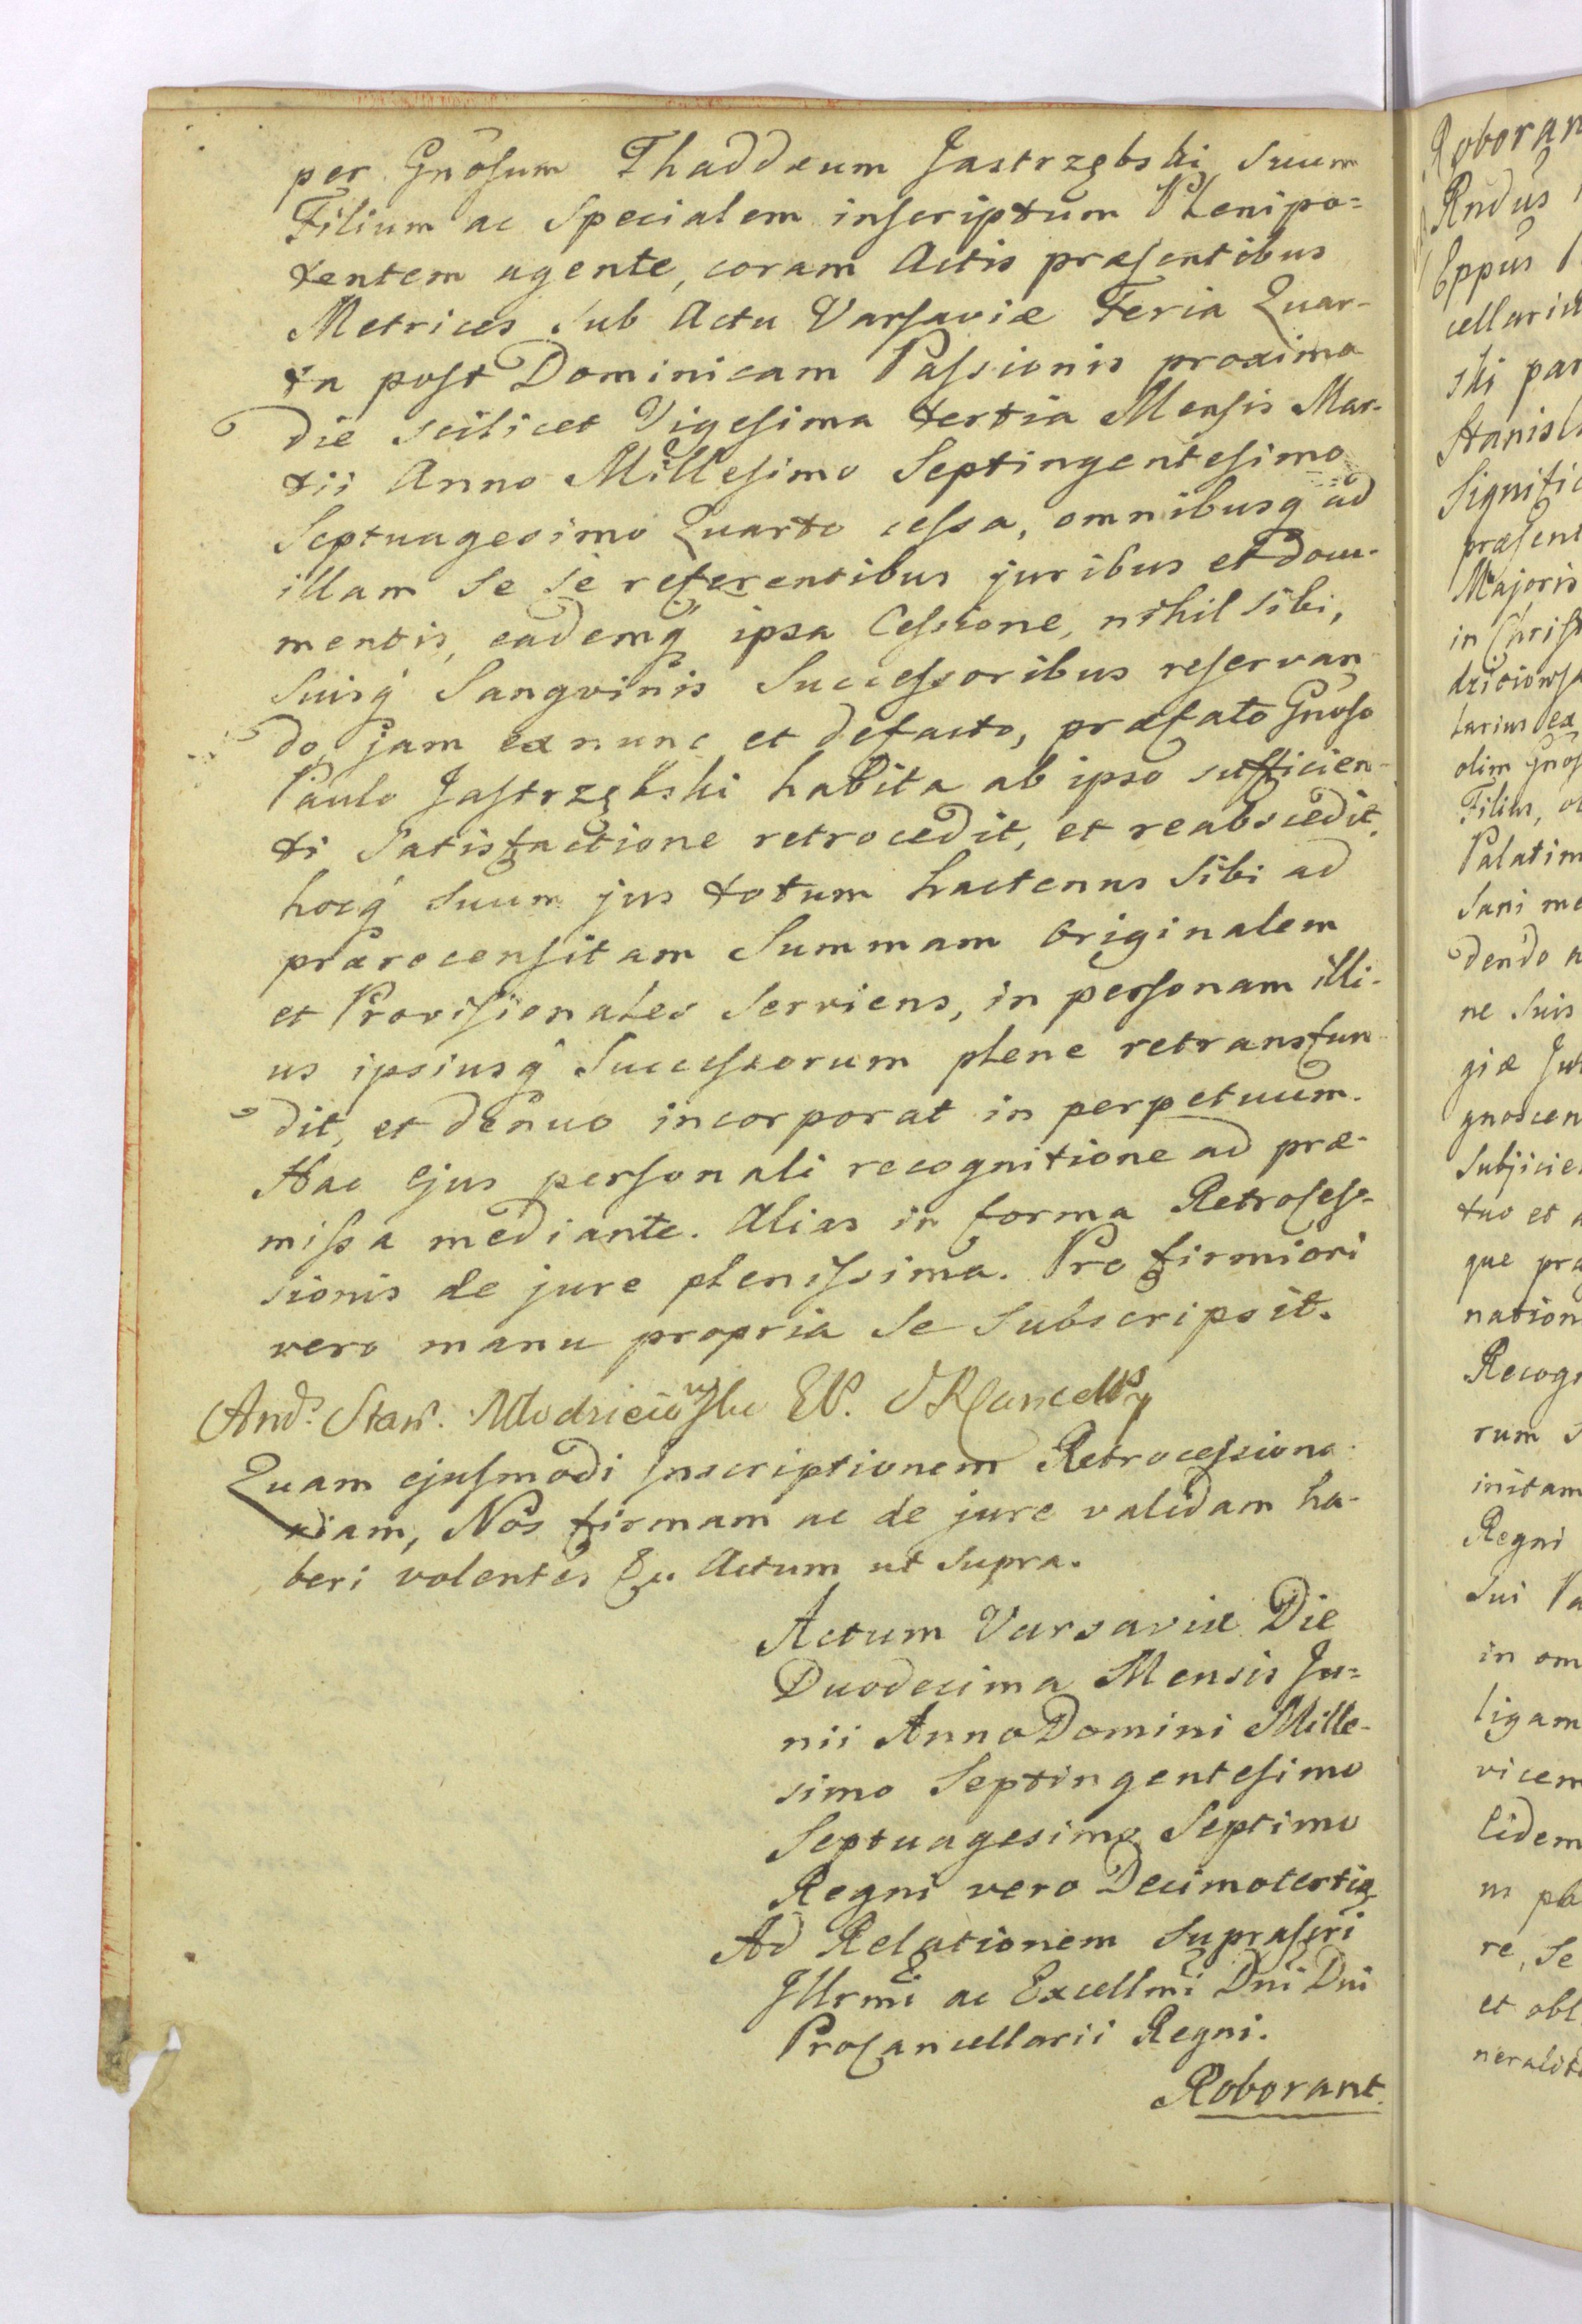 per Gnosum Thaddæum Jastrzębski suum
Filium ac Specialem inscriptum Plenipo=
tentem agente, coram Actis præsentibus
Metrices sub Actu Varsaviæ Feria Quar-
ta post Dominicam Passionis proxima
die scilicet Vigesima tertia Mensis Mar-
tii Anno Millesimo Septingentesimo
Septuagesimo Quarto cessa, omnibusq ad
illam se se referentibus juribus et docu-
mentis, eademq ipsa Cessione, nihil sibi,
suisq Sangvinis Successoribus reservan
do, jam ex nunc et defacto, præfato Gnoso
Paulo Jastrzębski habita ab ipso sufficien-
ti satisfactione retrocedit, et reabscedit,
hocq suum jus totum hactenus sibi ad
præro censitam Summam originalem
et Provisionales serviens, in personam illi-
us ipsiusq Successorum plene retransfun
dit, et denuo incorporat in perpetuum.
Hac ejus personali recognitione ad præ-
missa mediante. Alias in forma Retroses-
sionis de jure plenissima. Pro firmiori
vero manu propria se subscripsit.
And. Stan. Młodzieiowski EP.
Quam ejusmodi Inscriptionem Retrocessiona-
riam, Nos firmam ac de jure validam ha-
beri volentes &c. Actum ut supra.
Actum Varsaviæ Die
Duodecima Mensis Ju=
nii Anno Domini Mille-
simo Septingentesimo
Septuagesimo Septimo
Regni vero Decimotertio
Ad Relationem suprascri
Illrmi ac Excellmi Dni Dni
ProCancellarii Regni.
Roborant.
Roboran
Rndus
Eppus
cellariu
ski par
Stanisl
Signific
præsent
Majoris
in Christ
larius ex
olim Gnos
Filius, ol
Palatin
dendo n
ne suis
giæ Jul
gnoscen
subjicie
tuo et a
que pra
nation
Recogn
rum s
initam
Regni
sui Pa
in om
ligam
vicem
lidem
re, se
et obl
neralit